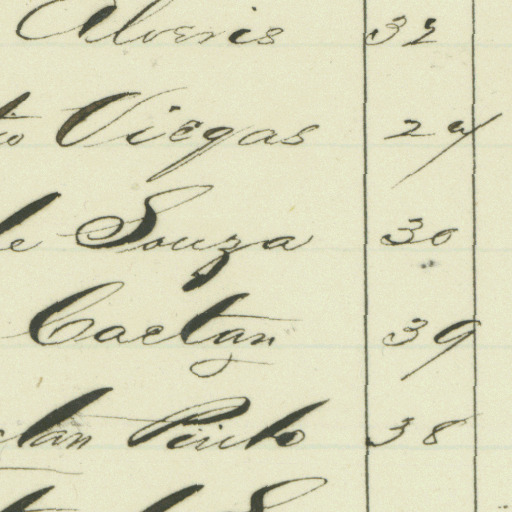 Alveris 32
Viegas 29
de Souza 30
Caetan 39
Pinto 38